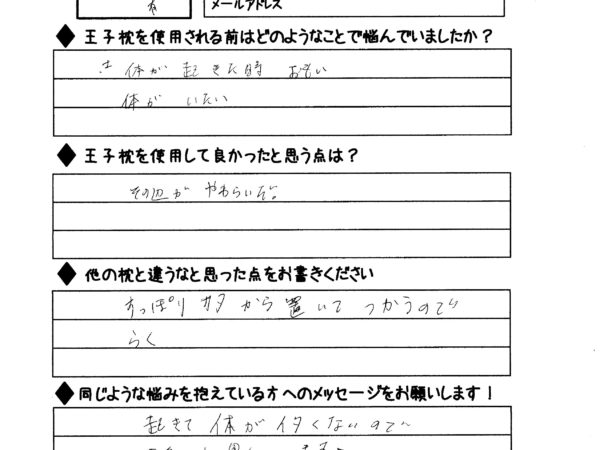 メールアドレス
◆ 王子枕を使用される前はどのようなことで悩んでいましたか?
体が 起きた時 おもい
体が いたい
◆ 王子枕を使用して良かったと思う点は?
その辺が やわらいだ。
◆ 他の枕と違うなと思った点をお書きください
すっぽり カタ から 置いて つかうので
らく
◆ 同じような悩みを抱えている方へのメッセージをお願いします!
起きて 体が イタくないので